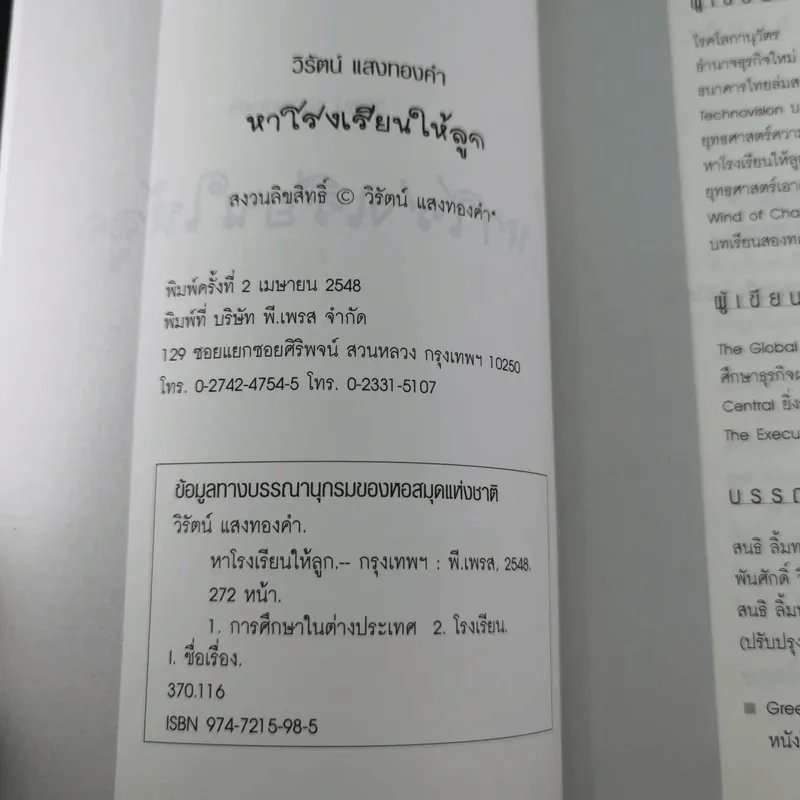 วิรัตน์ แสงทองคำ
หาโรงเรียนให้ลูก
สงวนลิขสิทธิ์ © วิรัตน์ แสงทองคำ
พิมพ์ครั้งที่ 2 เมษายน 2548
พิมพ์ที่ บริษัท พี.เพรส จำกัด
129 ซอยแยกซอยศิริพจน์ สวนหลวง กรุงเทพฯ 10250
โทร. 0-2742-4754-5 โทร. 0-2331-5107
ข้อมูลทางบรรณานุกรมของหอสมุดแห่งชาติ
วิรัตน์ แสงทองคำ.
หาโรงเรียนให้ลูก.-- กรุงเทพฯ : พี.เพรส, 2548.
272 หน้า.
1. การศึกษาในต่างประเทศ 2. โรงเรียน.
I. ชื่อเรื่อง.
370.116
ISBN 974-7215-98-5
โรคโลกานุวัตร
อำนาจธุรกิจใหม่
ธนาคารไทยล่มส
Technovision
ยุทธศาสตร์ความ
หาโรงเรียนให้ลู
ยุทธศาสตร์เอา
Wind of Cha
บทเรียนสองท
ผู้เขียน
The Global
ศึกษาธุรกิจ
Central ยิ่ง
The Execu
บรรณ
สนธิ ลิ้มท
พันศักดิ์ วิ
สนธิ ลิ้ม
(ปรับปรุง
Gree
หนัง